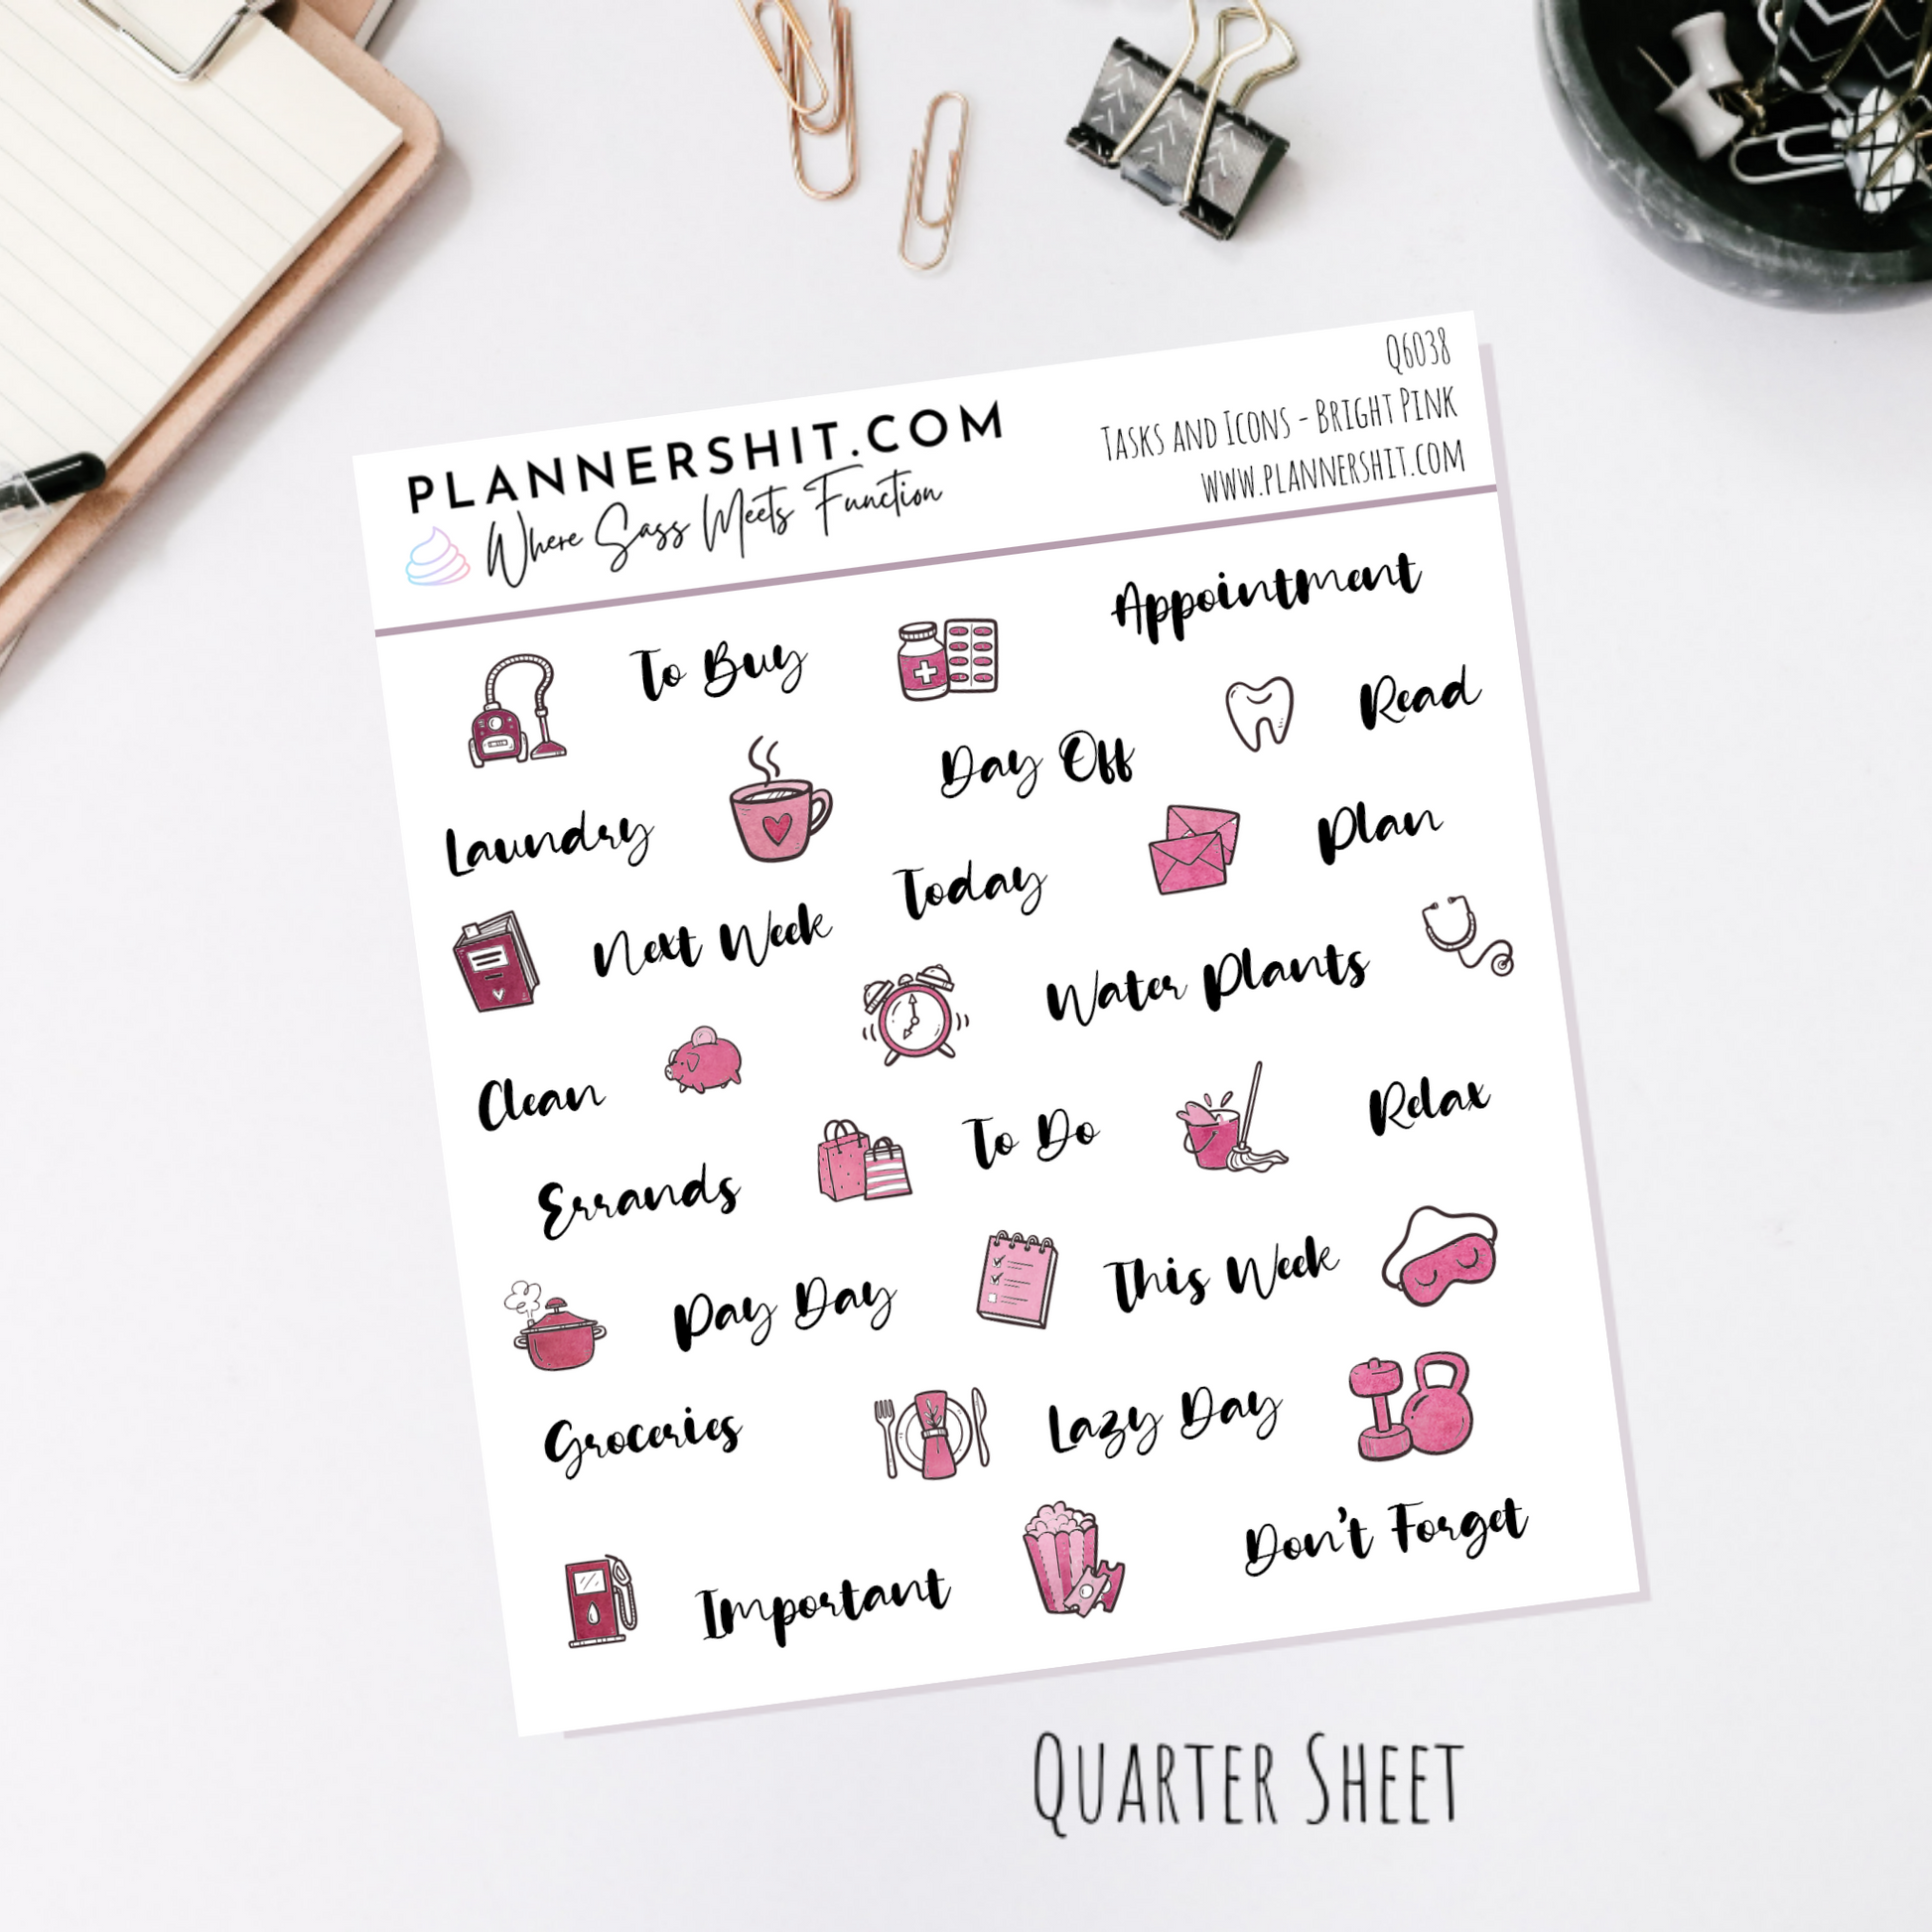 Q6038
Tasks and Icons - Bright Pink
www.plannershit.com
PLANNERSHIT.COM
Where Sass Meets Function
Appointment
To Buy
Read
Day Off
Laundry
Plan
Today
Next Week
Water Plants
Clean
To Do
Relax
Errands
This Week
Pay Day
Lazy Day
Groceries
Don't Forget
Important
Quarter Sheet